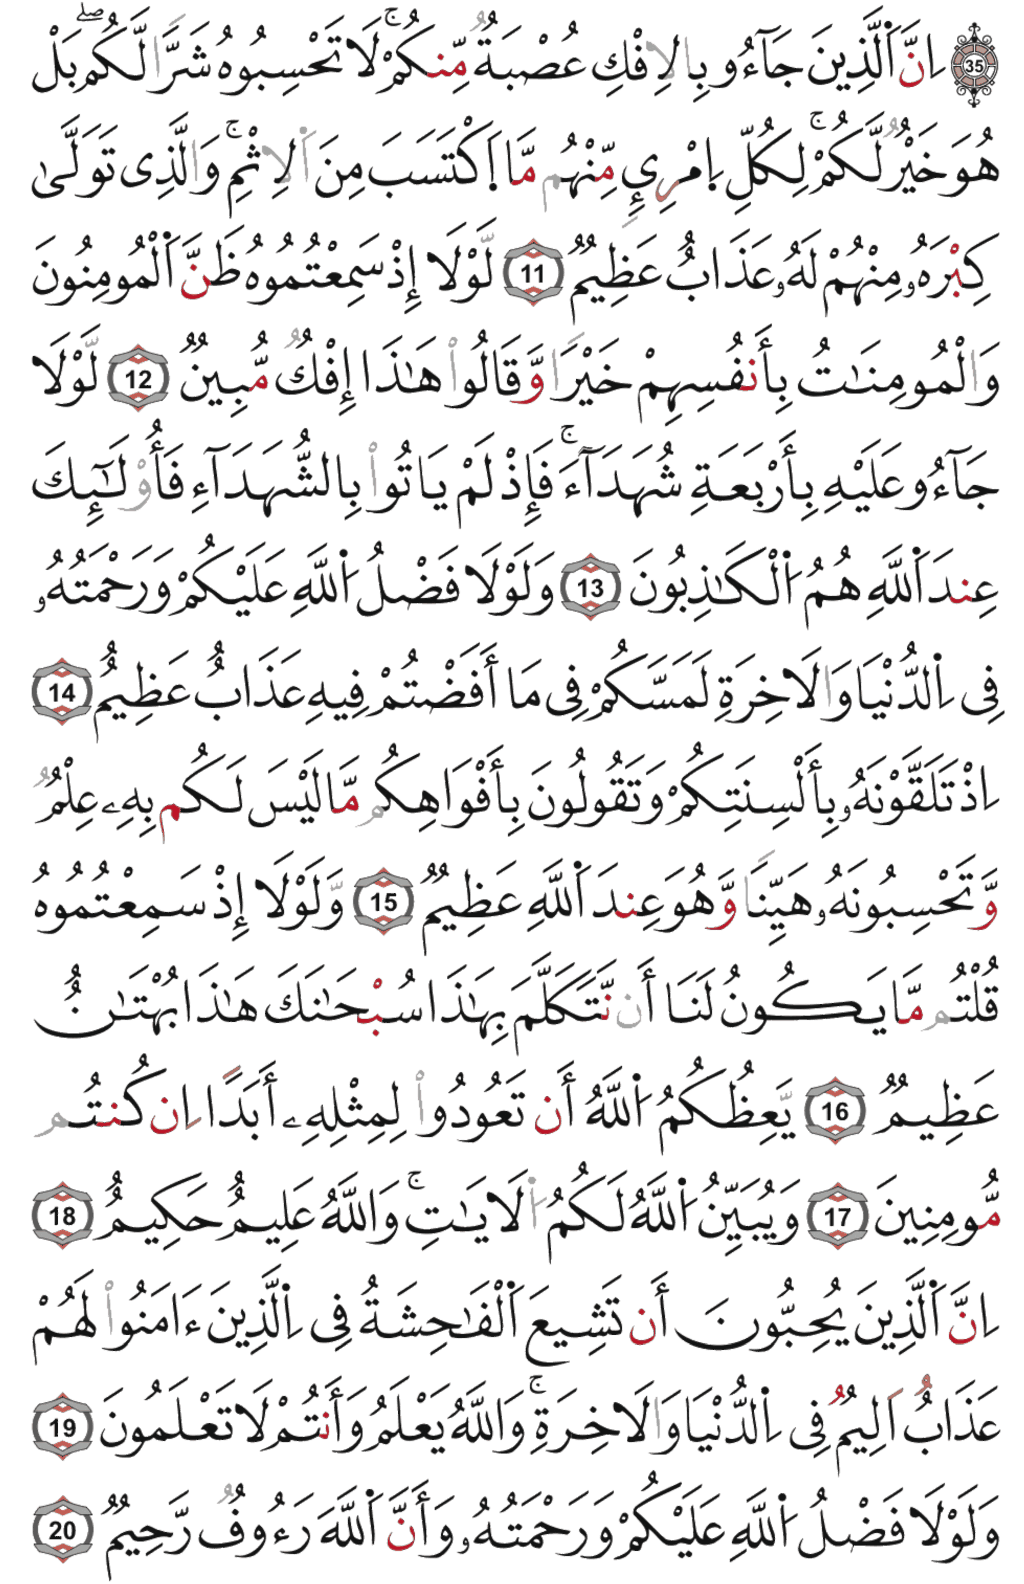 35 اِنَّ اَ۬لَّذِينَ جَآءُو بِالِافْكِ عُصْبَةٌ مِّنكُمْۚ لَا تَحْسِبُوهُ شَرّٗا لَّكُمۖ بَلْ
هُوَ خَيْرٞ لَّكُمْۚ لِكُلِّ اِ۪مْرِيِٕ مِّنْهُم مَّا اَ۪كْتَسَبَ مِنَ اَ۬لِاثْمِۚ وَالَّذِى تَوَلَّىٰ
كِبْرَهُۥ مِنْهُمْ لَهُۥ عَذَابٌ عَظِيمٌ 11 لَّوْلَا إِذْ سَمِعْتُمُوهُ ظَنَّ اَ۬لْمُومِنُونَ
وَالْمُومِنَٰتُ بِأَنفُسِهِمْ خَيْرٗا وَّقَالُواْ هَٰذَا إِفْكٌ مُّبِينٌ 12 لَّوْلَا
جَآءُو عَلَيْهِ بِأَرْبَعَةِ شُهَدَآءَۚ فَإِذْ لَمْ يَاتُواْ بِالشُّهَدَآءِ فَأُوْلَٰٓئِكَ
عِندَ اَ۬للَّهِ هُمُ اُ۬لْكَٰذِبُونَ 13 وَلَوْلَا فَضْلُ اُ۬للَّهِ عَلَيْكُمْ وَرَحْمَتُهُۥ
فِى اِ۬لدُّنْيَا وَالَاخِرَةِ لَمَسَّكُمْ فِى مَا أَفَضْتُمْ فِيهِ عَذَابٌ عَظِيمٌ 14
اِذْ تَلَقَّوْنَهُۥ بِأَلْسِنَتِكُمْ وَتَقُولُونَ بِأَفْوَاهِكُم مَّا لَيْسَ لَكُم بِهِۦ عِلْمٞ
وَّتَحْسِبُونَهُۥ هَيِّنٗا وَّهُوَ عِندَ اَ۬للَّهِ عَظِيمٌ 15 وَّلَوْلَا إِذْ سَمِعْتُمُوهُ
قُلْتُم مَّا يَكُونُ لَنَا أَن نَّتَكَلَّمَ بِهَٰذَا سُبْحَٰنَكَ هَٰذَا بُهْتَٰنٌ
عَظِيمٌ 16 يَّعِظُكُمُ اُ۬للَّهُ أَن تَعُودُواْ لِمِثْلِهِۦ أَبَدًا اِن كُنتُم
مُّومِنِينَ 17 وَيُبَيِّنُ اُ۬للَّهُ لَكُمُ اُ۬لَايَٰتِۚ وَاللَّهُ عَلِيمٌ حَكِيمٌ 18
اِنَّ اَ۬لَّذِينَ يُحِبُّونَ أَن تَشِيعَ اَ۬لْفَٰحِشَةُ فِى اِ۬لَّذِينَ ءَامَنُواْ لَهُمْ
عَذَابٌ اَلِيمٌ فِى اِ۬لدُّنْيَا وَالَاخِرَةِۚ وَاللَّهُ يَعْلَمُ وَأَنتُمْ لَا تَعْلَمُونَ 19
وَلَوْلَا فَضْلُ اُ۬للَّهِ عَلَيْكُمْ وَرَحْمَتُهُۥ وَأَنَّ اَ۬للَّهَ رَءُوفٞ رَّحِيمٌ 20